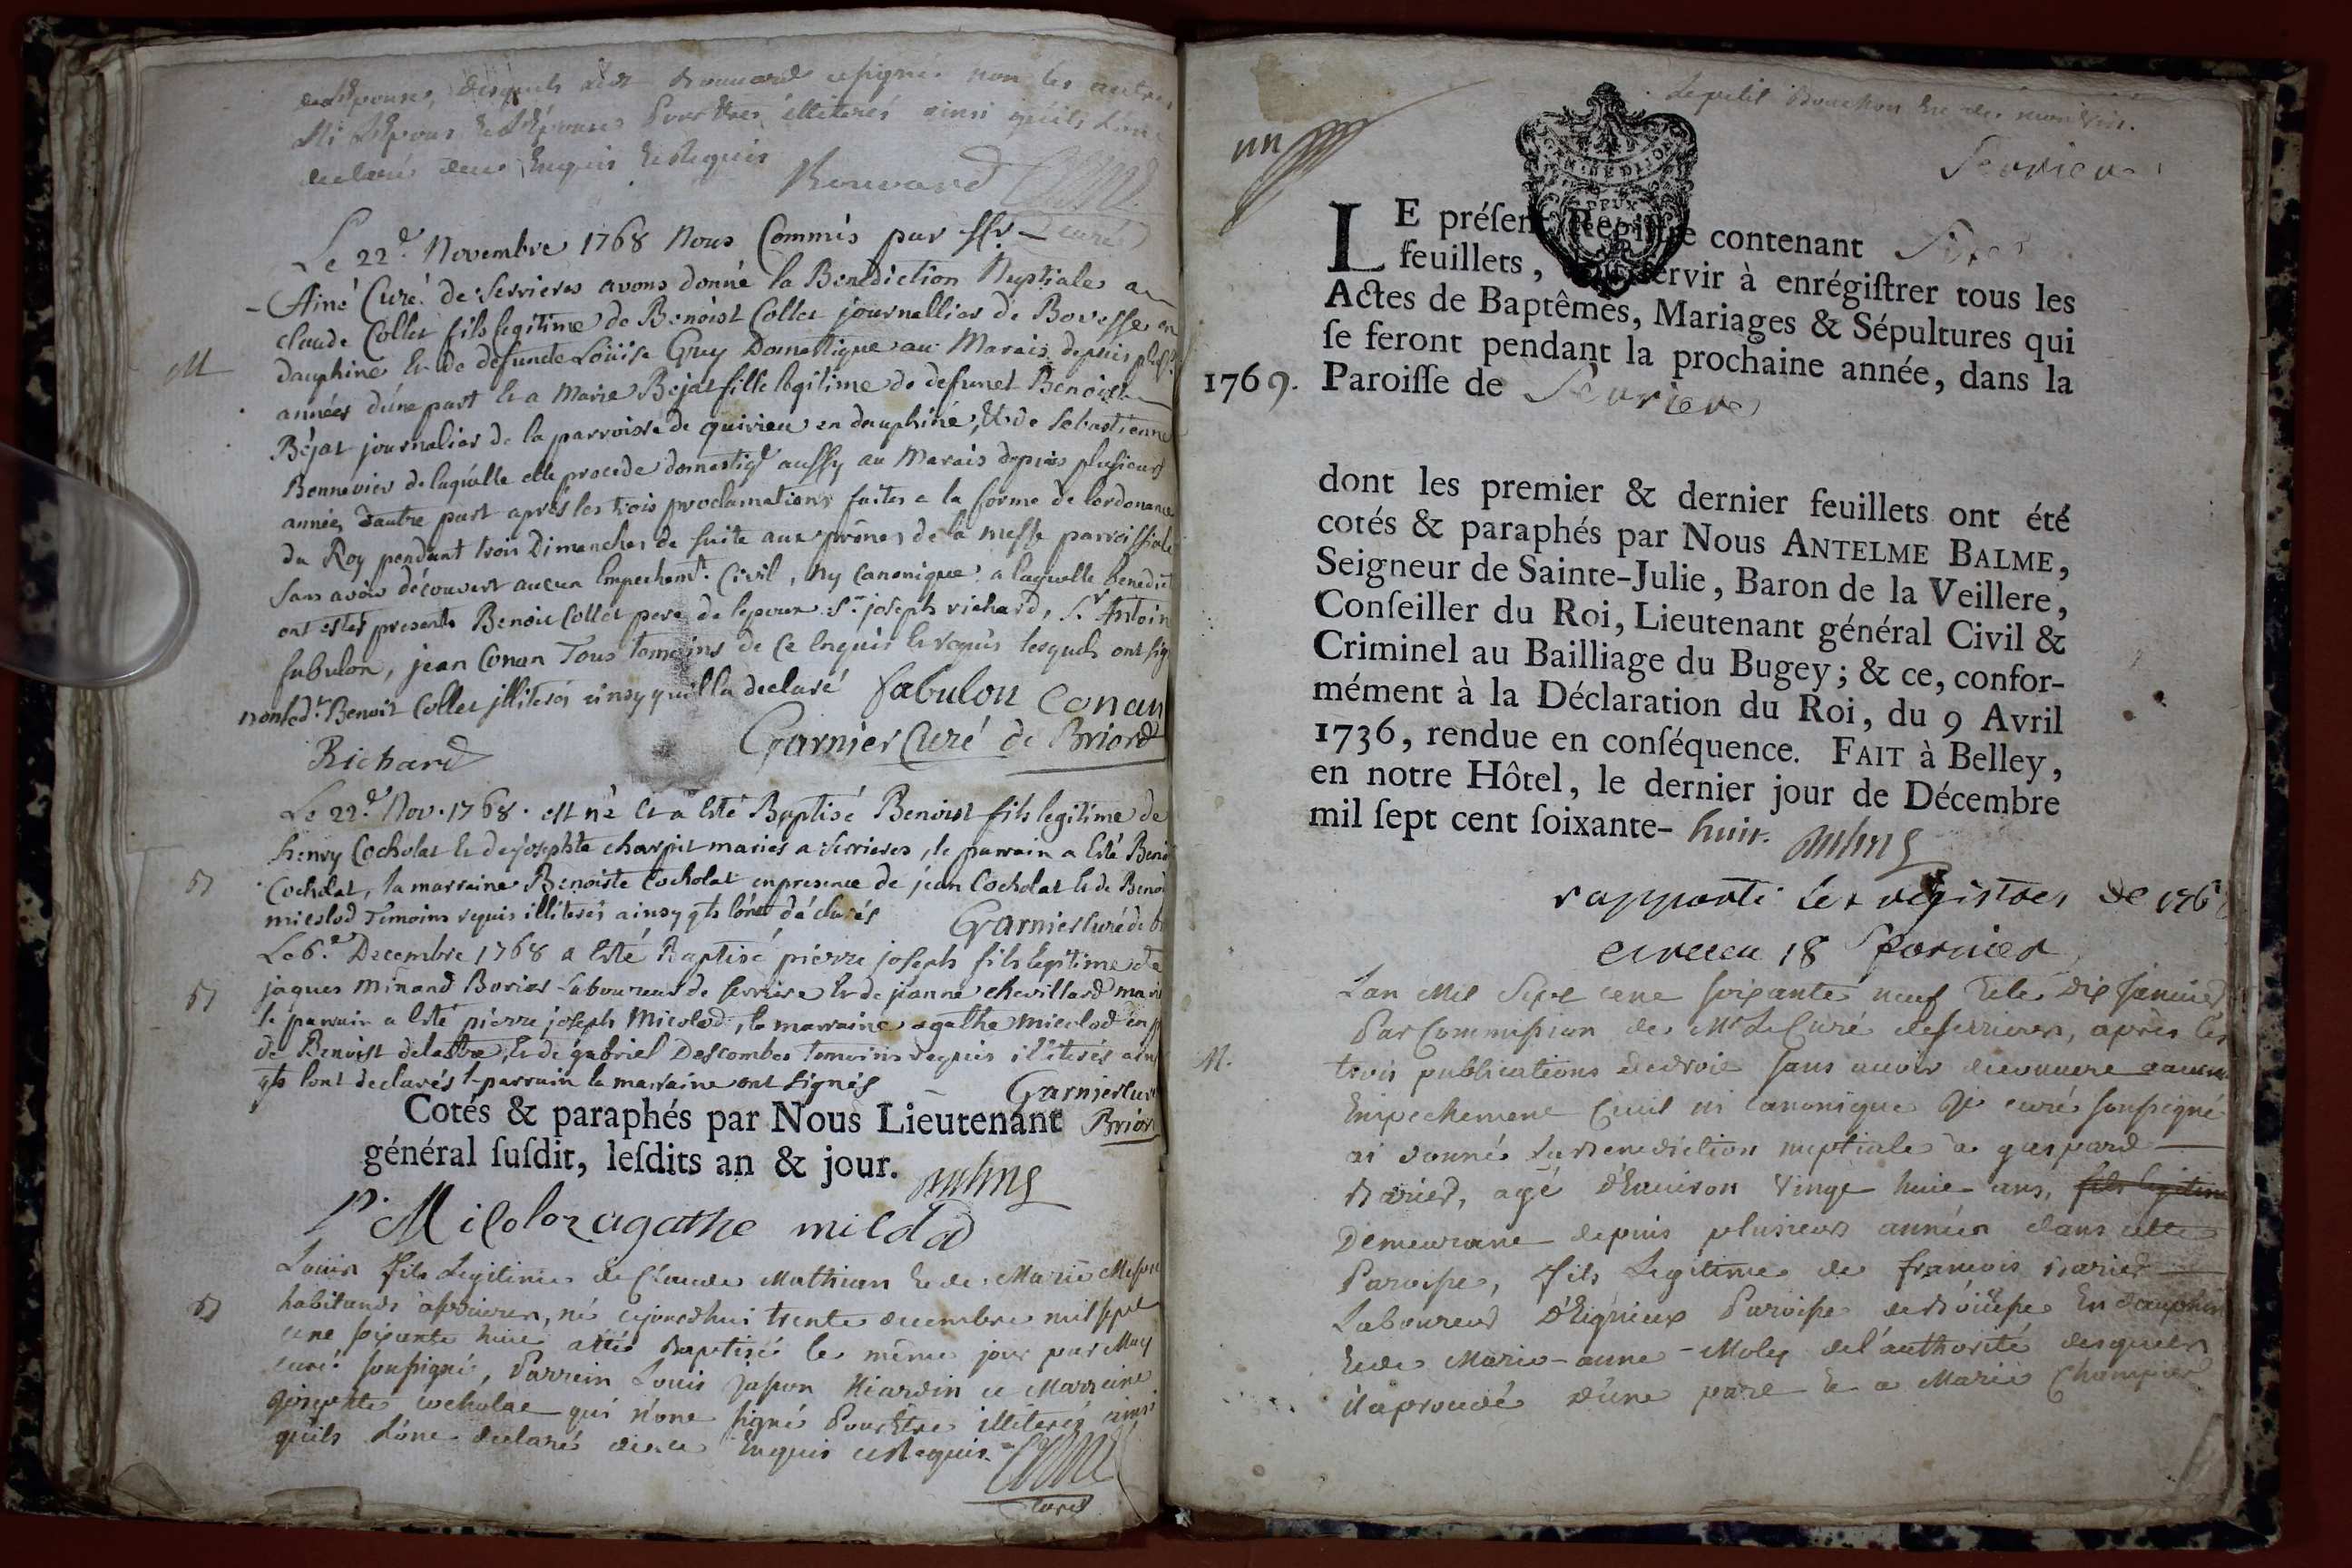 non les autres
ainsi qu'ils l'ont
declaré dece Enquis et Requis
Bouvard
curé
Le 22.e Novembre 1768 Nous Commis par Mr
Aimé Curé de Serrieres avons donné la Benediction Nuptiale a
claude Collet fils legitime de Benoist Collet journallier de Bovesse en
dauphiné et de defunte Loüise Grey Domestique au Marais depuis
M
années d'une part et a Marie Bejat fille legitime de defunct Benoist
Béjat journalier de la parroisse de quirieu en dauphiné, et de Sebastienne
Bennevier de laquelle elle procede domestiq aussy au Marais depuis plusieurs
années d'autre part après les trois proclamations faites a la forme de lordonance
du Roy pendant trois Dimanches de suite aux prônes de la messe parroissiale
sans avoir découvert aucun Empechemt. Civil, ny Canonique a laquelle benedict
ont estes presents Benoit Collet pere de lepoux Sr. joseph richard, Sr. Antoin
fabulon, jean Conan Tous temoins de Ce Enquis et requis lesquels ont sig
non led.t Benoit Collet illiteré ainsy quil la declaré
fabulon Conan
Garnier Curé de Briord
Richard
Le 22.e Nov. 1768. est né et a esté Baptisé Benoist fils legitime de
henry Cocholat et de josephte charpit mariés a Serrieres, le parrain a Esté Beno
B
Cocholat, la marraine Benoiste Cocholat en presence de jean Cocholat et de Benoi
mieslod Temoins requis illiterés ainsy qts lont déclarés
Garnier Curé de b
Le 6.e Decembre 1768 a Esté Baptisé pierre joseph fils legitime de
B
jaques Minand Borier Laboureur de serriere et de jeanne chevillard marié
le parrain a Esté pierre joseph Micolod, la marraine agathe Micolod en p
de Benoist delastre, et de gabriel Descombes temoins requis illiterés ain
qts lont declarés le parrain la marraine ont signés
Garnier Curé
Briord
Cotés & paraphés par Nous Lieutenant
général susdit, lesdits an & jour.
P. Micoloz agathe
Louis fils Legitime de Claude Mathian et de Marie
B
habitands a Serrieres, né cejourdhui trente decembre mil sept
cent soixante huit a été Baptisé le même jour par Moy
curé soussigné, Parrein Louis et Marreine
josephte cocholat qui n'ont signé Pour Etre illiterés ainsi
qu'ils l'ont declaré dece Enquis et Requis
curé
un
Serrieres
LE présent Registre contenant Sept
feuillets, doit servir à enrégistrer tous les
Actes de Baptêmes, Mariages & Sépultures qui
se feront pendant la prochaine année, dans la
1769. Paroisse de Serrieres
dont les premier & dernier feuillets ont été
cotés & paraphés par Nous ANTELME BALME,
Seigneur de Sainte-Julie, Baron de la Veillere,
Conseiller du Roi, Lieutenant général Civil &
Criminel au Bailliage du Bugey; & ce, confor-
mément à la Déclaration du Roi, du 9 Avril
1736, rendue en conséquence. FAIT à Belley,
en notre Hôtel, le dernier jour de Décembre
mil sept cent soixante-huit.
rapporté les registres de 176
18
Lan Mil Sept cent soixante neuf et le Dix Janvier
Par Commission de Mr Le Curé de serrieres, après les
M.
trois publications sans avoir decouvert aucun
Empechement Civil ni Canonique Je curé soussigné
ai donné La Benediction nuptiale a gaspard
Barier, agé d'Environ Vingt huit ans, fils legitime
Demeurant depuis plusieurs années dans cette
Paroisse, fils Legitime de francois Barier
Laboureur Paroisse de En dauphiné
et de Marie-anne Moly de l'authorité desquels
il a procedé d'une part et a Marie Champier